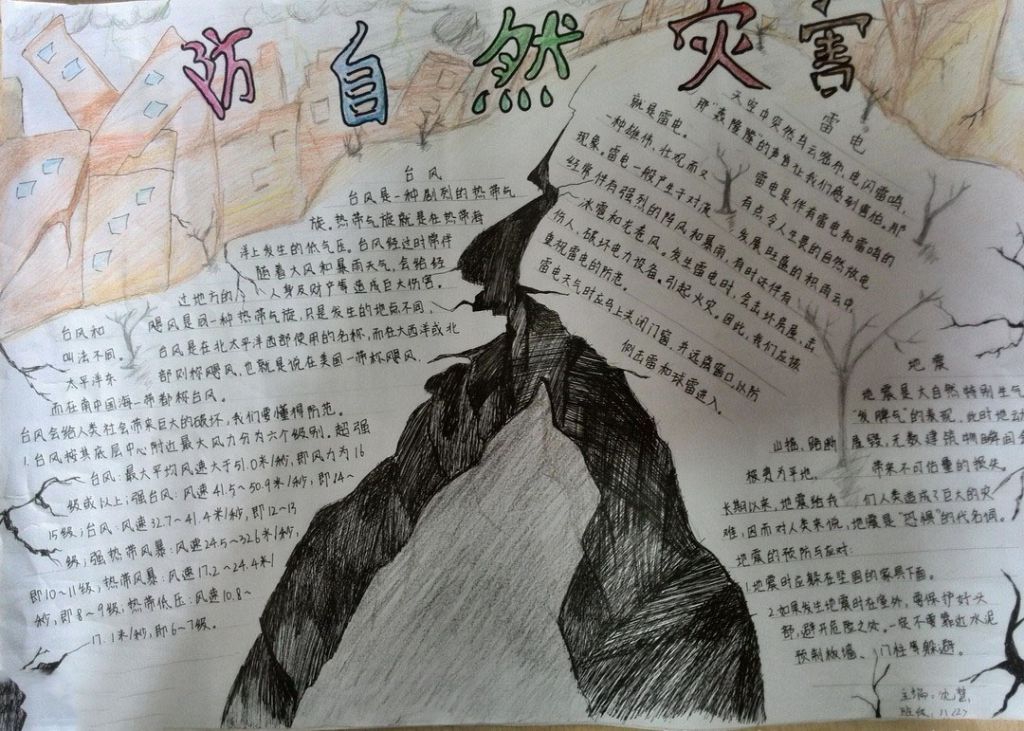 防自然灾害
台风
台风是一种剧烈的热带气
旋。热带气旋就是在热带海
洋上发生的低气压。台风经过时常伴
随着大风和暴雨天气,会给经
过地方的人身及财产等造成巨大伤害。
台风和飓风是同一种热带气旋,只是发生的地点不同,
叫法不同。台风是在北太平洋西部使用的名称,而在大西洋或北
太平洋东部则称飓风,也就是说在美国一带称飓风,
而在南中国海一带都称台风。
台风会给人类社会带来巨大的破坏,我们要懂得防范。
1.台风按其底层中心附近最大风力分为六个级别。超强
台风:最大平均风速大于51.0米/秒,即风力为16
级或以上;强台风:风速41.5~50.9米/秒,即14~
15级;台风:风速32.7~41.4米/秒,即12~13
级;强热带风暴:风速24.5~32.6米/秒,
即10~11级;热带风暴:风速17.2~24.4米/
秒,即8~9级;热带低压:风速10.8~
17.1米/秒,即6~7级。
雷电
天空中突然乌云密布,电闪雷鸣,
那“轰隆隆”的声音让我们感到害怕。那
就是雷电。雷电是伴有雷电和雷鸣的
一种雄伟、壮观而又有点令人生畏的自然放电
现象。雷电一般产生于对流发展旺盛的积雨云中,
经常伴有强烈的阵风和暴雨,有时还伴有
冰雹和龙卷风。发生雷电时,会击坏房屋,击
伤人,破坏电力设备。引起火灾。因此,我们应该
重视雷电的防范。
雷电天气时应马上关闭门窗,并远离窗口,以防
侧击雷和球雷进入。
地震
地震是大自然特别生气
“发脾气”的表现,此时地动
山摇,路断屋毁,无数建筑物瞬间
被夷为平地。带来不可估量的损失。
长期以来,地震给我们人类造成了巨大的灾
难,因而对人类来说,地震是“恐惧”的代名词。
地震的预防与应对:
1地震时应躲在坚固的家具下面。
2如果发生地震时在室外,要保护好头
部,避开危险之处。一定不要靠近水泥
预制板墙、门柱等躲避。
主编:沈
班级: